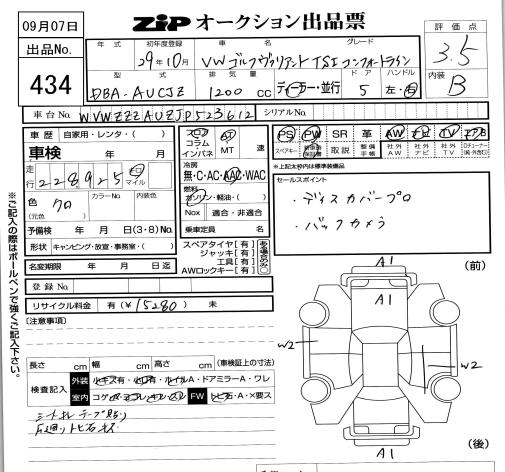 09月07日
ZiP オークション出品票
評価点
3.5
出品No.
434
年式 初年度登録 車名 グレード
29年10月 VW ゴルフヴァリアント TSI コンフォートライン
型式 排気量 ドア ハンドル
DBA-AUCJZ 1200 CC ディーラー・並行 5 左・右
内装
B
車台No. WVWZZZAUZJP523612 シリアルNo.
車歴 自家用・レンタ・( )
車検 年 月
走行 228925 キロ マイル
色 (元色) クロ カラーNo. 内装色
予備検 年 月(3・8)No.
形状 キャンピング・放宣・事務室・( )
名変期限 年 月 日迄
登録No.
リサイクル料金 有(¥15280) 未
フロア コラム インパネ AT MT 速
冷房
無・C・AC・AAC・WAC
燃料
ガソリン・軽油・( )
Nox 適合・非適合
乗車定員 名
スペアタイヤ[有]
ジャッキ[有]
工具[有]
AWロックキー[有]
PS PW SR 革 AW ナビ TV エアB
スペアキー 取説 整備手帳 社外AW 社外ナビ 社外TV
※上記太わくは標準装備品
セールスポイント
・ディスカバープロ
・バックカメラ
※ご記入の際はボールペンで強くご記入下さい。
(注意事項)
長さ cm 幅 cm 高さ cm (車検証上の寸法)
検査記入 外装 小キズ有・小凹有・ホイルA・ドアミラーA・ワレ
室内 コゲ・穴・ヨゴレ・キレ・スレ FW トビ石・A・×要ス
シートキレ テープ貼り
F廻りトビ石キズ
A1 (前)
A1
W2
W2
A1
(後)